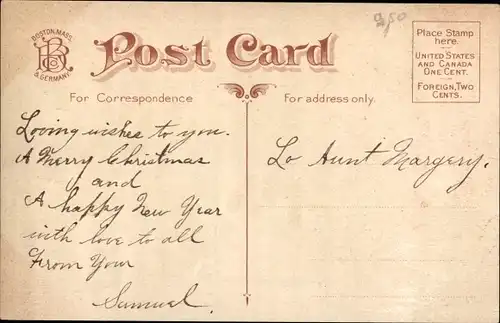 BOSTON, MASS.
BRC
& GERMANY.
Post Card
950
Place Stamp
here.
UNITED STATES
AND CANADA
ONE CENT.
FOREIGN, TWO
CENTS.
For Correspondence
For address only.
Loving wishes to you.
A Merry Christmas
and
A happy New Year
with love to all
From Your
Samuel.
To Aunt Margery.